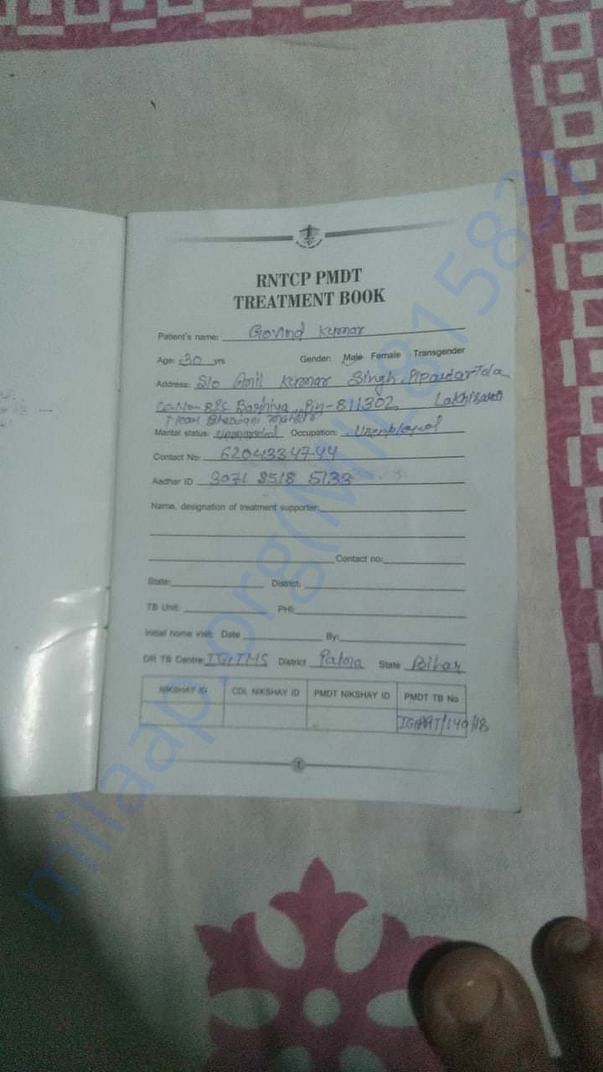 RNTCP PMDT
TREATMENT BOOK
Patient's name: Govind Kumar
Age: 30 yrs Gender: Male Female Transgender
Address: S/o Anil Kumar Singh,
Pin-811302 Lakhisarai
Near
Marital status: Unmarried Occupation: Unemployed
Contact No: 6204334744
Aadhar ID 3071 8518 5133
Name, designation of treatment supporter:
Contact no:
State: District:
TB Unit: PHI:
Initial home visit: Date By:
DR TB Centre: IGIMS District Patna State Bihar
NIKSHAY ID CDL NIKSHAY ID PMDT NIKSHAY ID PMDT TB No
/140/18
1
milaap.org(MILE81583)